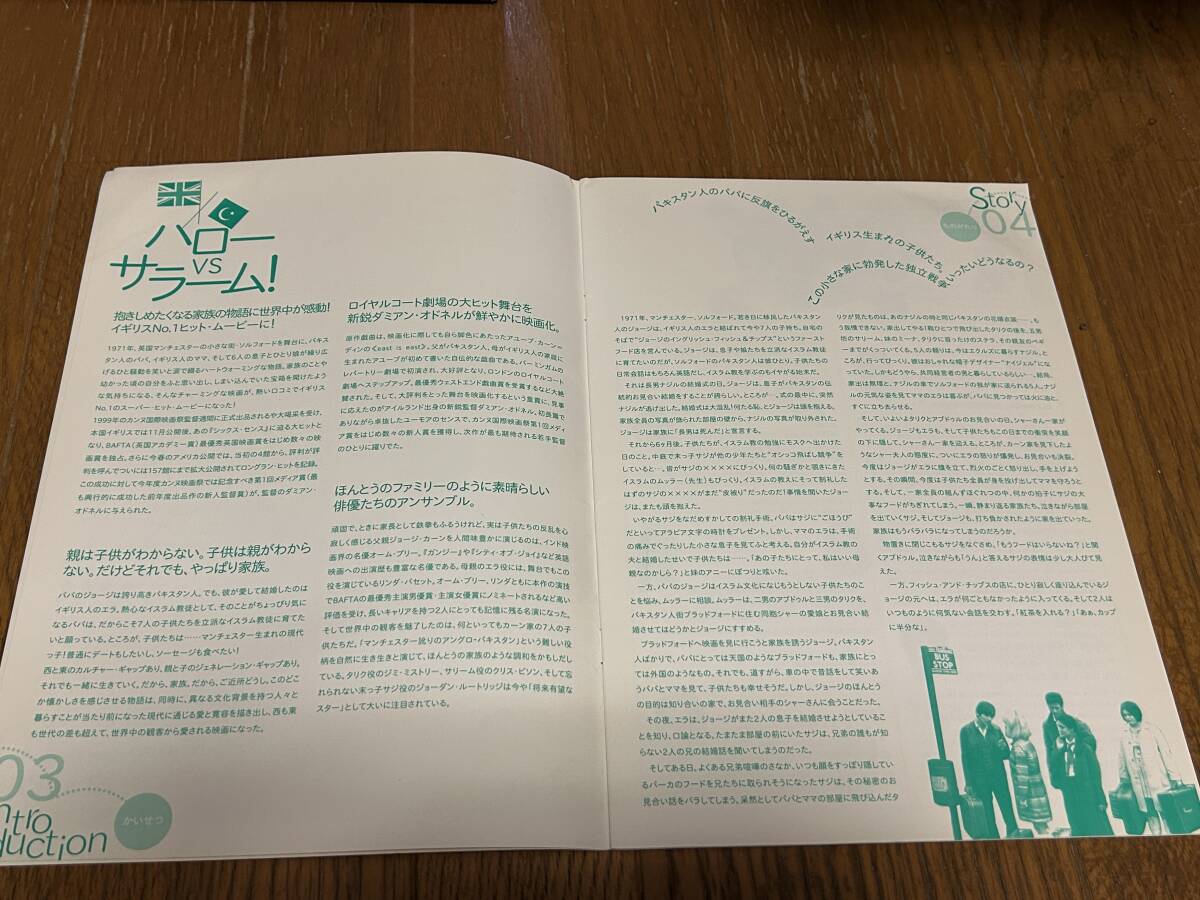 ハロー
vs
サラーム!
抱きしめたくなる家族の物語に世界中が感動!
イギリスNo.1ヒット・ムービーに!
1971年、英国マンチェスターの小さな街・ソルフォードを舞台に、パキス
タン人のパパ、イギリス人のママ、そして6人の息子とひとり娘が繰り広
げるひと騒動を笑いと涙で綴るハートウォーミングな物語。家族のことや
幼かった頃の自分をふと思い出し、しまい込んでいた宝箱を開けたよう
な気持ちになる、そんなチャーミングな映画が、熱い口コミでイギリス
No.1のスーパー・ヒット・ムービーになった!
1999年のカンヌ国際映画祭監督週間に正式出品されるや大喝采を受け、
本国イギリスでは11月公開後、あの『シックス・センス』に迫る大ヒットと
なり、BAFTA(英国アカデミー賞)最優秀英国映画賞をはじめ数々の映
画賞を独占。さらに今春のアメリカ公開では、当初の4館から、評判が評
判を呼んでついには157館にまで拡大公開されてロングラン・ヒットを記録。
この成功に対して今年度カンヌ映画祭では記念すべき第1回メディア賞(最
も興行的に成功した前年度出品作の新人監督賞)が、監督のダミアン・
オドネルに与えられた。
親は子供がわからない。子供は親がわから
ない。だけどそれでも、やっぱり家族。
パパのジョージは誇り高きパキスタン人。でも、彼が愛して結婚したのは
イギリス人のエラ。熱心なイスラム教徒として、そのことがちょっぴり気に
なるパパは、だからこそ7人の子供たちを立派なイスラム教徒に育てた
いと願っている。ところが、子供たちは……マンチェスター生まれの現代
っ子!普通にデートもしたいし、ソーセージも食べたい!
西と東のカルチャー・ギャップあり。親と子のジェネレーション・ギャップあり。
それでも一緒に生きていく。だから、家族。だから、ご近所どうし。このどこ
か懐かしさを感じさせる物語は、同時に、異なる文化背景を持つ人々と
暮らすことが当たり前になった現代に通じる愛と寛容を描き出し、西も東
も世代の差も超えて、世界中の観客から愛される映画になった。
ロイヤルコート劇場の大ヒット舞台を
新鋭ダミアン・オドネルが鮮やかに映画化。
原作戯曲は、映画化に際しても自ら脚色にあたったアユーブ・カーン=
ディンの《east is east》。父がパキスタン人、母がイギリス人の家庭に
生まれたアユーブが初めて書いた自伝的な戯曲である。バーミンガムの
レパートリー劇場で初演され、大好評となり、ロンドンのロイヤルコート
劇場へステップアップ。最優秀ウェストエンド戯曲賞を受賞するなど大絶
賛された。そして、大評判をとった舞台を映画化するという重責に、見事
に応えたのがアイルランド出身の新鋭監督ダミアン・オドネル。初長篇で
ありながら卓抜したユーモアのセンスで、カンヌ国際映画祭第1回メディ
ア賞をはじめ数々の新人賞を獲得し、次作が最も期待される若手監督
のひとりに躍りでた。
ほんとうのファミリーのように素晴らしい
俳優たちのアンサンブル。
頑固で、ときに家長として鉄拳もふるうけれど、実は子供たちの反乱を心
寂しく感じる父親ジョージ・カーンを人間味豊かに演じるのは、インド映
画界の名優オーム・プリー。『ガンジー』や『シティ・オブ・ジョイ』など英語
映画への出演歴も豊富な名優である。母親のエラ役には、舞台でもこの
役を演じているリンダ・バセット。オーム・プリー、リンダともに本作の演技
でBAFTAの最優秀主演男優賞・主演女優賞にノミネートされるなど高い
評価を受け、長いキャリアを持つ2人にとっても記憶に残る名演になった。
そして世界中の観客を魅了したのは、何といってもカーン家の7人の子
供たちだ。「マンチェスター訛りのアングロ・パキスタン」という難しい役
柄を自然に生き生きと演じて、ほんとうの家族のような調和をかもしだし
ている。タリク役のジミ・ミストリー、サリーム役のクリス・ビソン、そして忘
れられない末っ子サジ役のジョーダン・ルートリッジは今や「将来有望な
スター」として大いに注目されている。
03
Intro
duction
かいせつ
Story
04
ものがたり
パキスタン人のパパに反旗をひるがえす
イギリス生まれの子供たち。
この小さな家に勃発した独立戦争、いったいどうなるの?
1971年、マンチェスター、ソルフォード。若き日に移民したパキスタン
人のジョージは、イギリス人のエラと結ばれて今や7人の子持ち。自宅の
そばで"ジョージのイングリッシュ・フィッシュ&チップス"というファースト
フード店を営んでいる。ジョージは、息子や娘たちを立派なイスラム教徒
に育てたいのだが、ソルフォードのパキスタン人は彼ひとり。子供たちの
日常会話はもちろん英語だし、イスラム教を学ぶのもイヤがる始末だ。
それは長男ナジルの結婚式の日。ジョージは、息子がパキスタンの伝
統的お見合い結婚をすることが誇らしい。ところが…、式の最中に、突然
ナジルが逃げ出した。結婚式は大混乱!何たる恥、とジョージは頭を抱える。
家族全員の写真が飾られた部屋の壁から、ナジルの写真が取り外された。
ジョージは家族に「長男は死んだ」と宣言する。
それから6ヶ月後。子供たちが、イスラム教の勉強にモスクへ出かけた
日のこと。中庭で末っ子サジが他の少年たちと"オシッコ飛ばし競争"を
していると…。皆がサジの××××にびっくり。何の騒ぎかと覗きにきた
イスラムのムッラー(先生)もびっくり。イスラムの教えにそって割礼した
はずのサジの××××がまだ"皮被り"だったのだ!事情を聞いたジョー
ジは、またも頭を抱えた。
いやがるサジをなだめすかしての割礼手術。パパはサジに"ごほうび"
だといってアラビア文字の時計をプレゼント。しかし、ママのエラは、手術
の痛みでぐったりした小さな息子を見てふと考える。自分がイスラム教の
夫と結婚したせいで子供たちは……、「あの子たちにとって、私はいい母
親なのかしら?」と妹のアニーにぽつりと呟いた。
一方、パパのジョージはイスラム文化になじもうとしない子供たちのこ
とを悩み、ムッラーに相談。ムッラーは、二男のアブドゥルと三男のタリクを、
パキスタン人街ブラッドフォードに住む同胞シャーの愛娘とお見合い結
婚させてはどうかとジョージにすすめる。
ブラッドフォードへ映画を見に行こうと家族を誘うジョージ。パキスタン
人ばかりで、パパにとっては天国のようなブラッドフォードも、家族にとっ
ては外国のようなもの。それでも、道すがら、車の中で昔話をして笑いあ
うパパとママを見て、子供たちも幸せそうだ。しかし、ジョージのほんとう
の目的は知り合いの家で、お見合い相手のシャーさんに会うことだった。
その夜、エラは、ジョージがまた2人の息子を結婚させようとしているこ
とを知り、口論となる。たまたま部屋の前にいたサジは、兄弟の誰もが知
らない2人の兄の結婚話を聞いてしまうのだった。
そしてある日、よくある兄弟喧嘩のさなか、いつも顔をすっぽり隠してい
るパーカのフードを兄たちに取られそうになったサジは、その秘密のお
見合い話をバラしてしまう。呆然としてパパとママの部屋に飛び込んだタ
リクが見たものは、あのナジルの時と同じパキスタンの花婿衣装……。も
う我慢できない、家出してやる!飛び出したタリクの後を、五男
坊のサリーム、妹のミーナ、タリクに首ったけのステラ、その親友のペギ
ーまでがくっついてくる。5人の頼りは、今はエクルズに暮らすナジル。と
ころが、行ってびっくり。彼はおしゃれな帽子デザイナー"ナイジェル"にな
っていた。しかもどうやら、共同経営者の男と暮らしているらしい…。結局、
家出は無理と、ナジルの車でソルフォードの我が家に送られる5人。ナジ
ルの元気な姿を見てママのエラは喜ぶが、パパに見つかっては火に油と、
すぐに立ちさらせる。
そして、いよいよタリクとアブドゥルのお見合いの日。シャーさん一家が
やってくる。ジョージもエラも、そして子供たちもこの日までの衝突を笑顔
の下に隠して、シャーさん一家を迎える。ところが、カーン家を見下したよ
うなシャー夫人の態度に、ついにエラの怒りが爆発し、お見合いも決裂。
今度はジョージがエラに腹を立て、烈火のごとく怒り出し、手を上げよう
とする。その瞬間、今度は子供たち全員が身を投げ出してママを守ろうと
する。そして、一家全員の組んずほぐれつの中、何かの拍子にサジの大
事なフードがちぎれてしまう。一瞬、静まり返る家族たち。泣きながら部屋
を出ていくサジ。そしてジョージも、打ち負かされたように家を出ていった。
家族はもうバラバラになってしまうのだろうか。
物置きに閉じこもるサジをなぐさめ、「もうフードはいらないね?」と聞
くアブドゥル。泣きながらも「うん」と答えるサジの表情は少し大人びて見
えた。
一方、フィッシュ・アンド・チップスの店に、ひとり寂しく座り込んでいるジ
ョージの元へは、エラが何ごともなかったように入ってくる。そして2人は
いつものように何気ない会話を交わす。「紅茶を入れる?」「ああ、カップ
に半分な」。
BUS
STOP